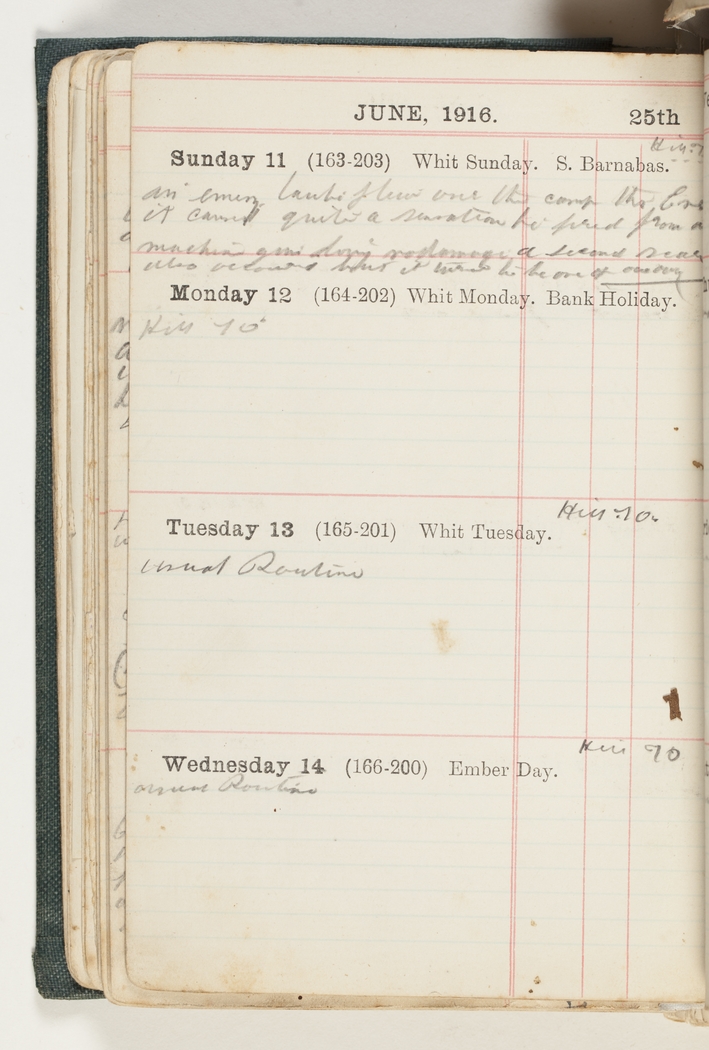 JUNE, 1916. 25th
Hill 7
Sunday 11 (163-203) Whit Sunday. S. Barnabas.
an enemy flew over the camp this Eve
it caused quite a sensation he fired from a
machine gun doing no damage a second scare
also occoured but it turned to be one of our own
Monday 12 (164-202) Whit Monday. Bank Holiday.
Hill 70
Hill 70.
Tuesday 13 (165-201) Whit Tuesday.
usual Routine
Hill 70
Wednesday 14 (166-200) Ember Day.
usual Routine